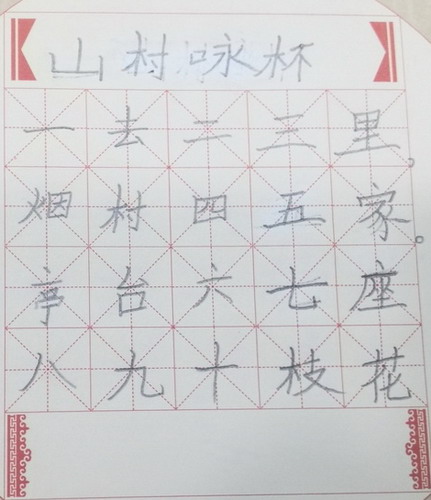 山村咏杯
一去二三里,
烟村四五家。
亭台六七座
八九十枝花